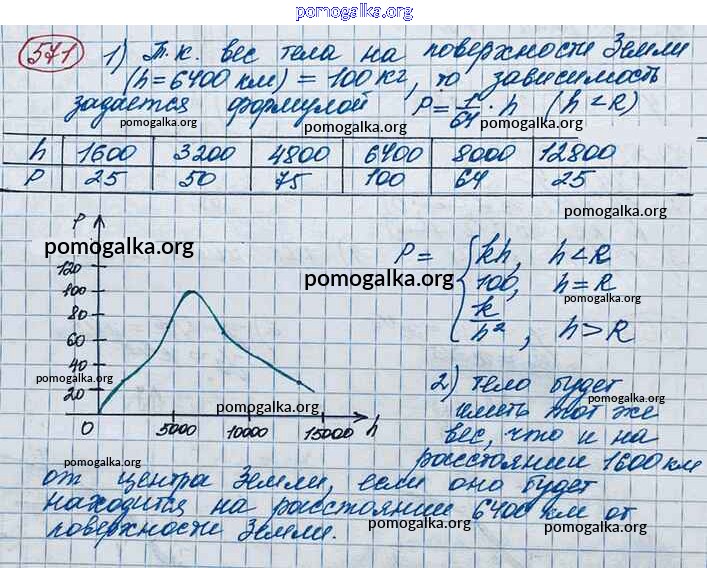 pomogalka.org
571 1) Т.к. вес тела на поверхности Земли
(h=6400 км) = 100 кг, то зависимость
задаётся формулой P = 1/64 · h (h < R)
pomogalka.org pomogalka.org
h 1600 3200 4800 6400 8000 12800
P 25 50 75 100 64 25
pomogalka.org
P
120
100
80
60
40
20
0 5000 10000 15000 h
pomogalka.org
pomogalka.org
pomogalka.org
P = { kh, h < R
100, h = R
k/h², h > R
pomogalka.org
pomogalka.org
2) тело будет
pomogalka.org
иметь тот же
вес, что и на
расстоянии 1600 км
pomogalka.org
от центра Земли, если оно будет
находится на расстоянии 6400 км от
поверхности Земли.
pomogalka.org
pomogalka.org